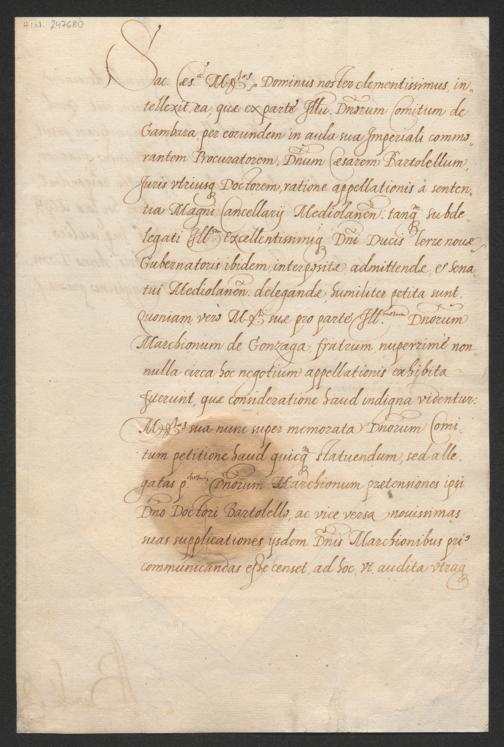 Hist. 247680
Sac. Caes.ᵃ Mᵗᵃˢ. Dominus noster clementissimus, in=
tellexit ea, que ex parte Illu. Dnorum Comitum de
Gambara per eorundem in aula sua Imperiali commo=
rantem Procuratorem, Dnum Caesarem Bartolellum,
Juris vtriusq Doctorem, ratione appellationis à senten=
tia Magni Cancellarij Mediolanen. tanq subde=
legati Ill. Excellentissimiq Dni Ducis Terre noue
Gubernatoris ibidem, interposite admittende, et Sena
tui Mediolanen. delegande, humiliter petita sunt.
Quoniam, vero Mᵗⁱ sue pro parte Ill. Dnorum
Marchionum de Gonzaga, fratrum nuperrime non
nulla circa hoc negotium appellationis exhibita
fuerunt, que consideratione haud indigna videntur:
Mᵗᵃˢ sua nunc super memorata Dnorum Comi
tum petitione haud quicq statuendum, sed alle
gatas Dnorum Marchionum pretensiones ipsi
Dno Doctori Bartolello, ac vice versa nouissimas
suas supplicationes ijsdem Dnis Marchionibus pri
communicandas esse censet, ad hoc, vt, audita vtraq